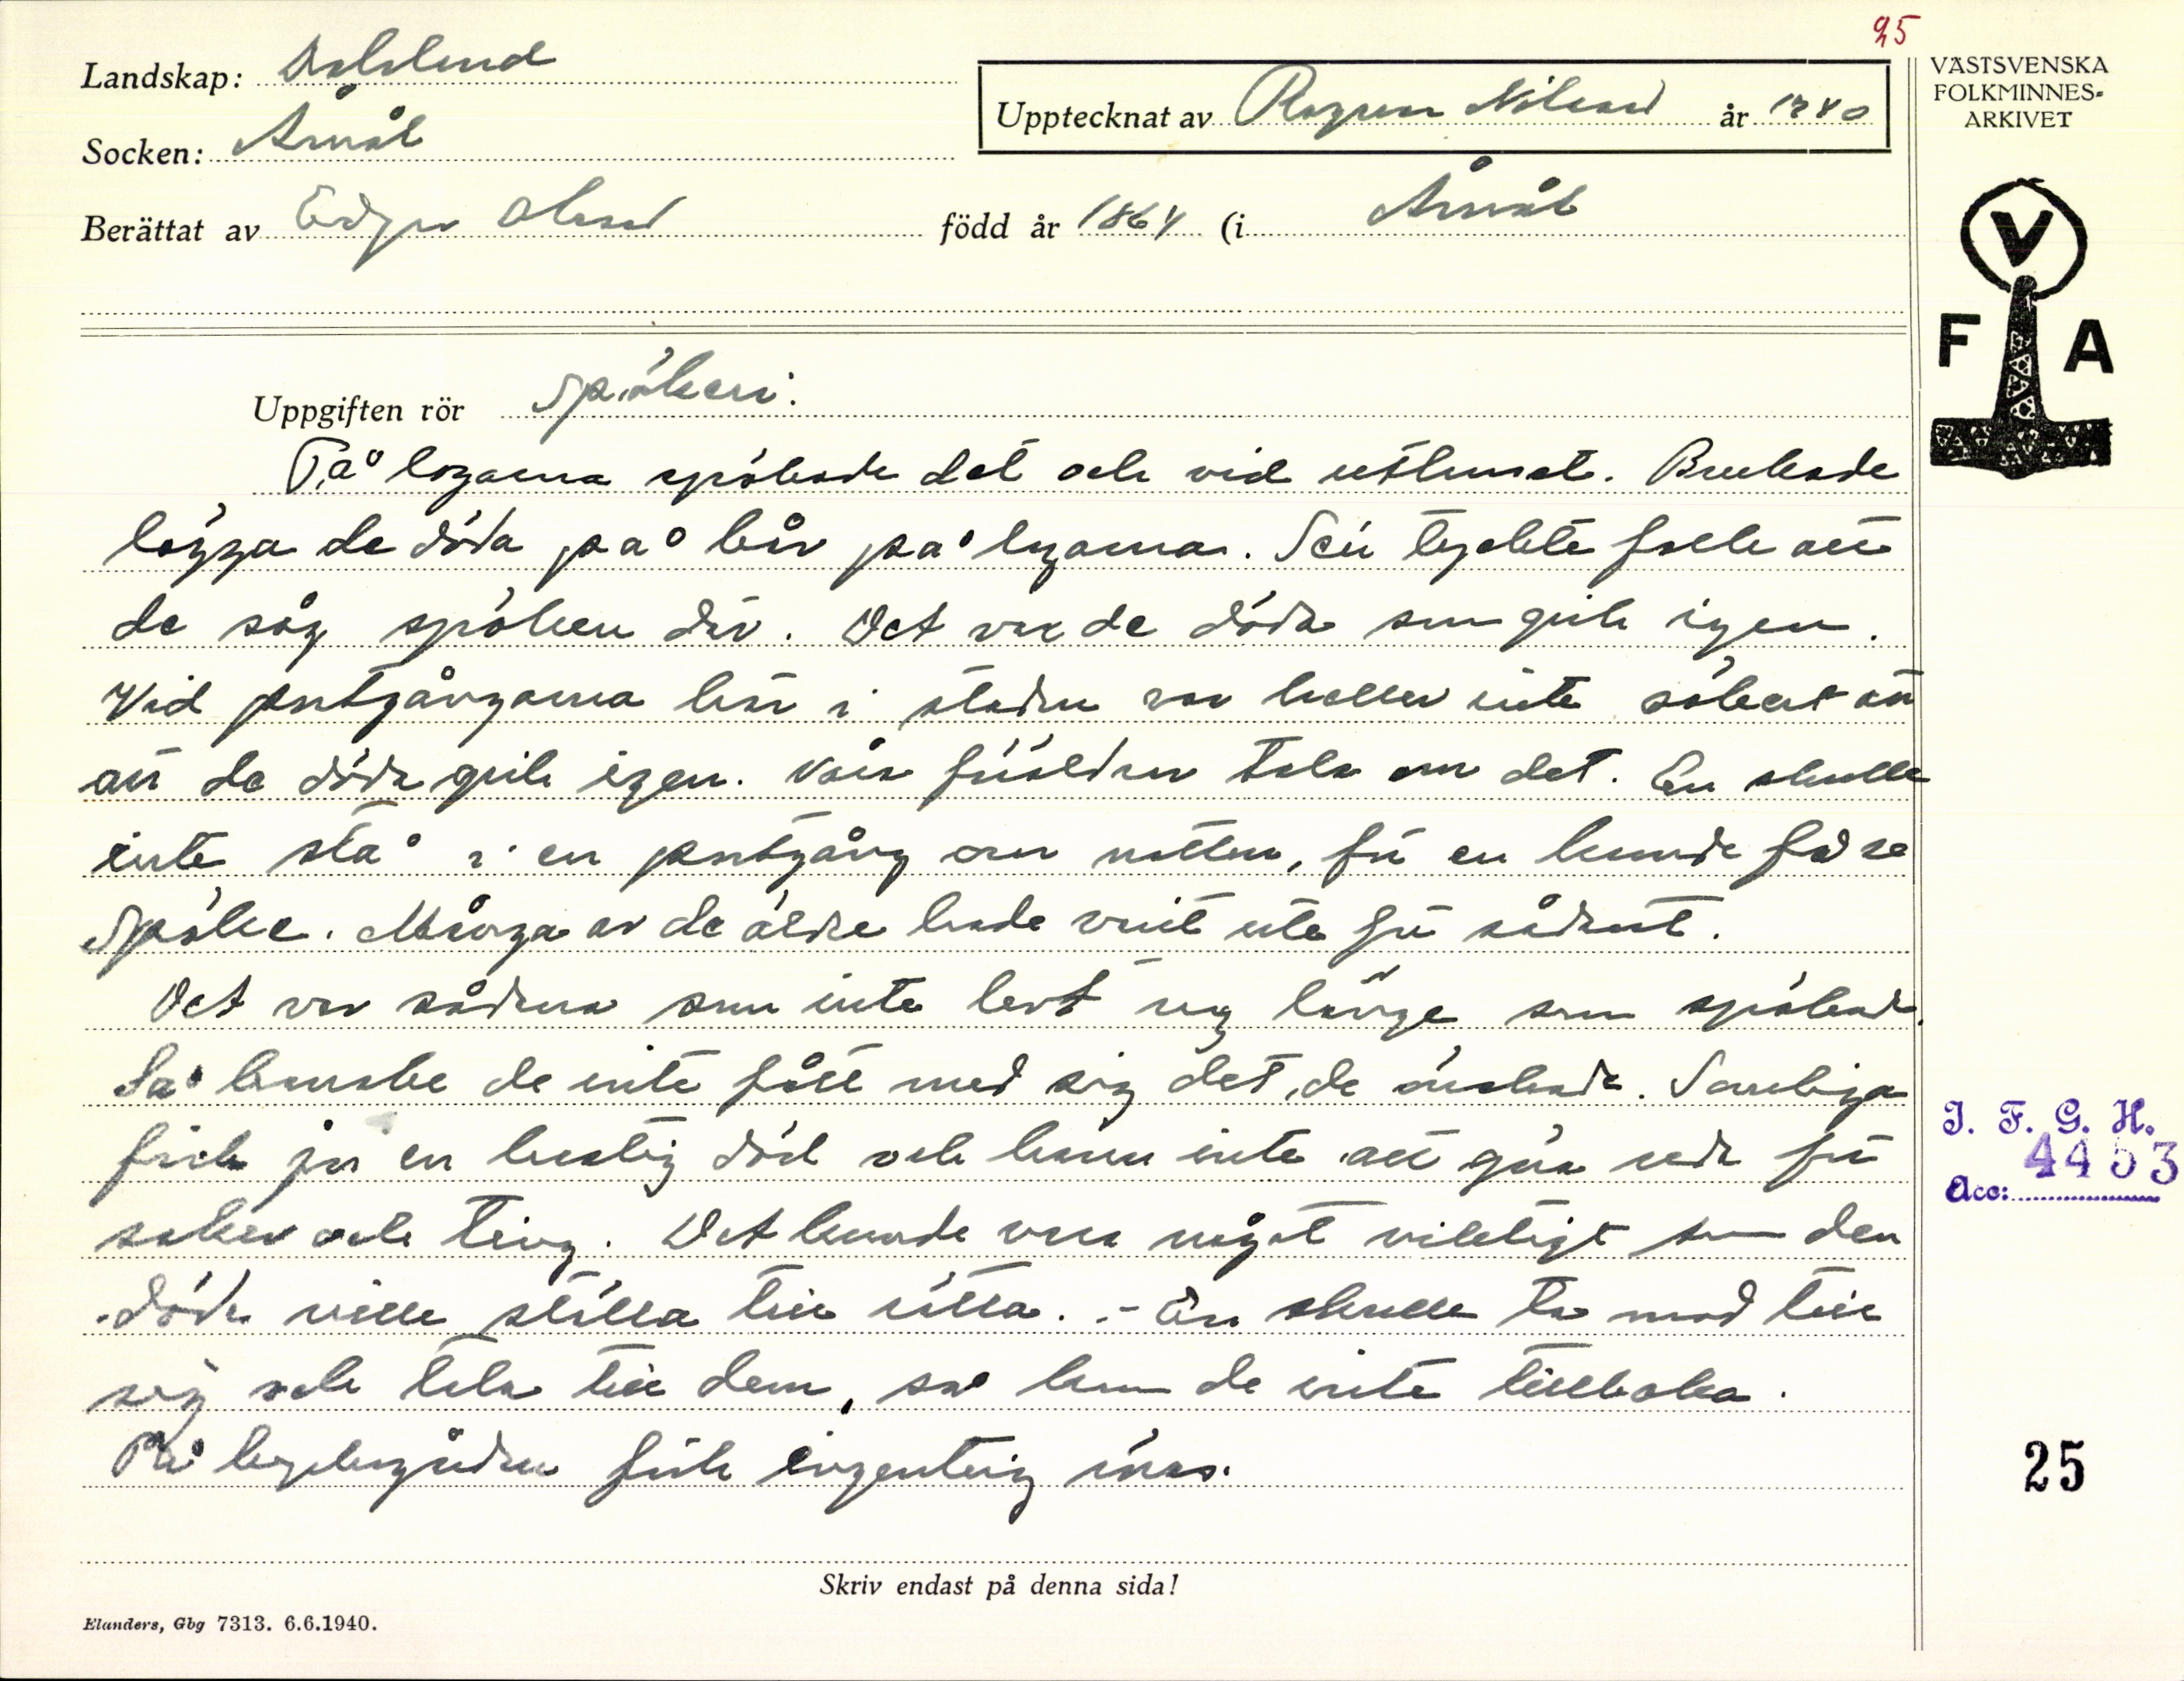 25
Landskap: Dalsland
Upptecknat av Ragnar Nilsson år 1940
Socken: Åmål
Berättat av Edgar Olsson född år 1864 (i Åmål
VÄSTSVENSKA
FOLKMINNES-
ARKIVET
V
F A
Uppgiften rör Spökeri.
På logarna spökade det och vid uthuset. Brukade
lägga de döda på bår på logarna. Sen tyckte folk att
de såg spöken där. Det var de döda som gick igen.
Vid portgångarna här i staden var heller inte säkert än
att de döda gick igen. Våra föräldrar tala om det. En skulle
inte stå i en portgång om natten, för en kunde få se
spöke. Många av de äldre hade varit ute för sådant.
Det var sådana som inte levt sig länge som spökade.
Så kanske de inte fått med sig det, de önskade. Somliga
fick ju en hastig död och hann inte att göra reda för
saker och ting. Det kunde vara något viktigt som den
döde ville ställa till rätta. - En skulle ta mod till
sig och tala till dem, så kom de inte tillbaka.
På kyrkogården fick ingenting röras.
I. F. G. H.
Acc: 4453
25
Skriv endast på denna sida!
Elanders, Gbg 7313. 6.6.1940.